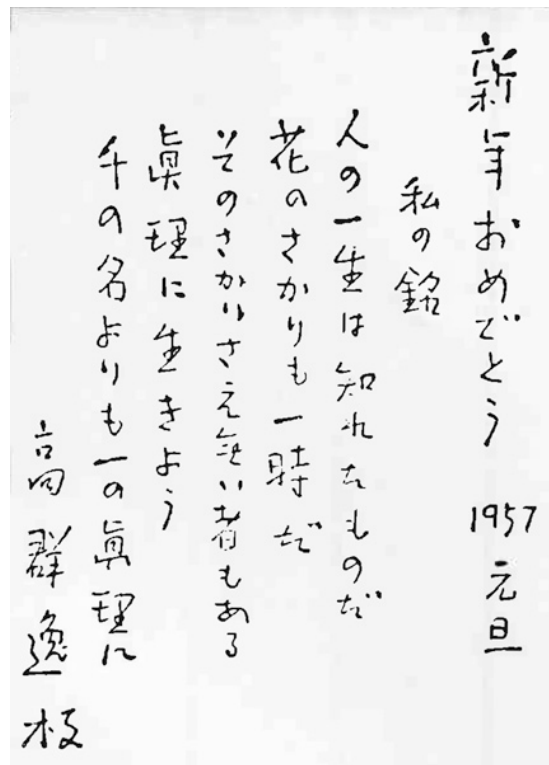 新年おめでとう 1957 元旦
私の銘
人の一生は知れたものだ
花のさかりも一時だ
そのさかりさえ無い者もある
眞理に生きよう
千の名よりも一の眞理に
高群逸枝